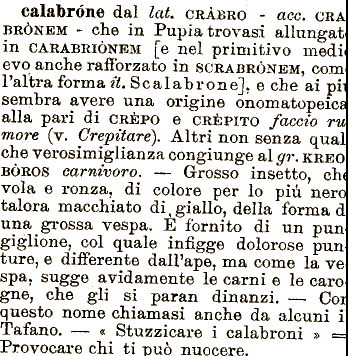 calabróne dal lat. CRÀBRO - acc. CRA
BRÒNEM - che in Pupia trovasi allungat
in CARABRIÒNEM [e nel primitivo medi
evo anche rafforzato in SCRABRÒNEM, com
l'altra forma it. Scalabrone], e che ai pi
sembra avere una origine onomatopeica
alla pari di CRÈPO e CRÈPITO faccio ru
more (v. Crepitare). Altri non senza qual
che verosimiglianza congiunge al gr. KREO
BÒROS carnivoro. — Grosso insetto, ch
vola e ronza, di colore per lo piú nero
talora macchiato di giallo, della forma d
una grossa vespa. È fornito di un pun
giglione, col quale infigge dolorose pun
ture, e differente dall'ape, ma come la ve
spa, sugge avidamente le carni e le caro
gne, che gli si paran dinanzi. — Con
questo nome chiamasi anche da alcuni i
Tafano. — « Stuzzicare i calabroni » =
Provocare chi ti può nuocere.